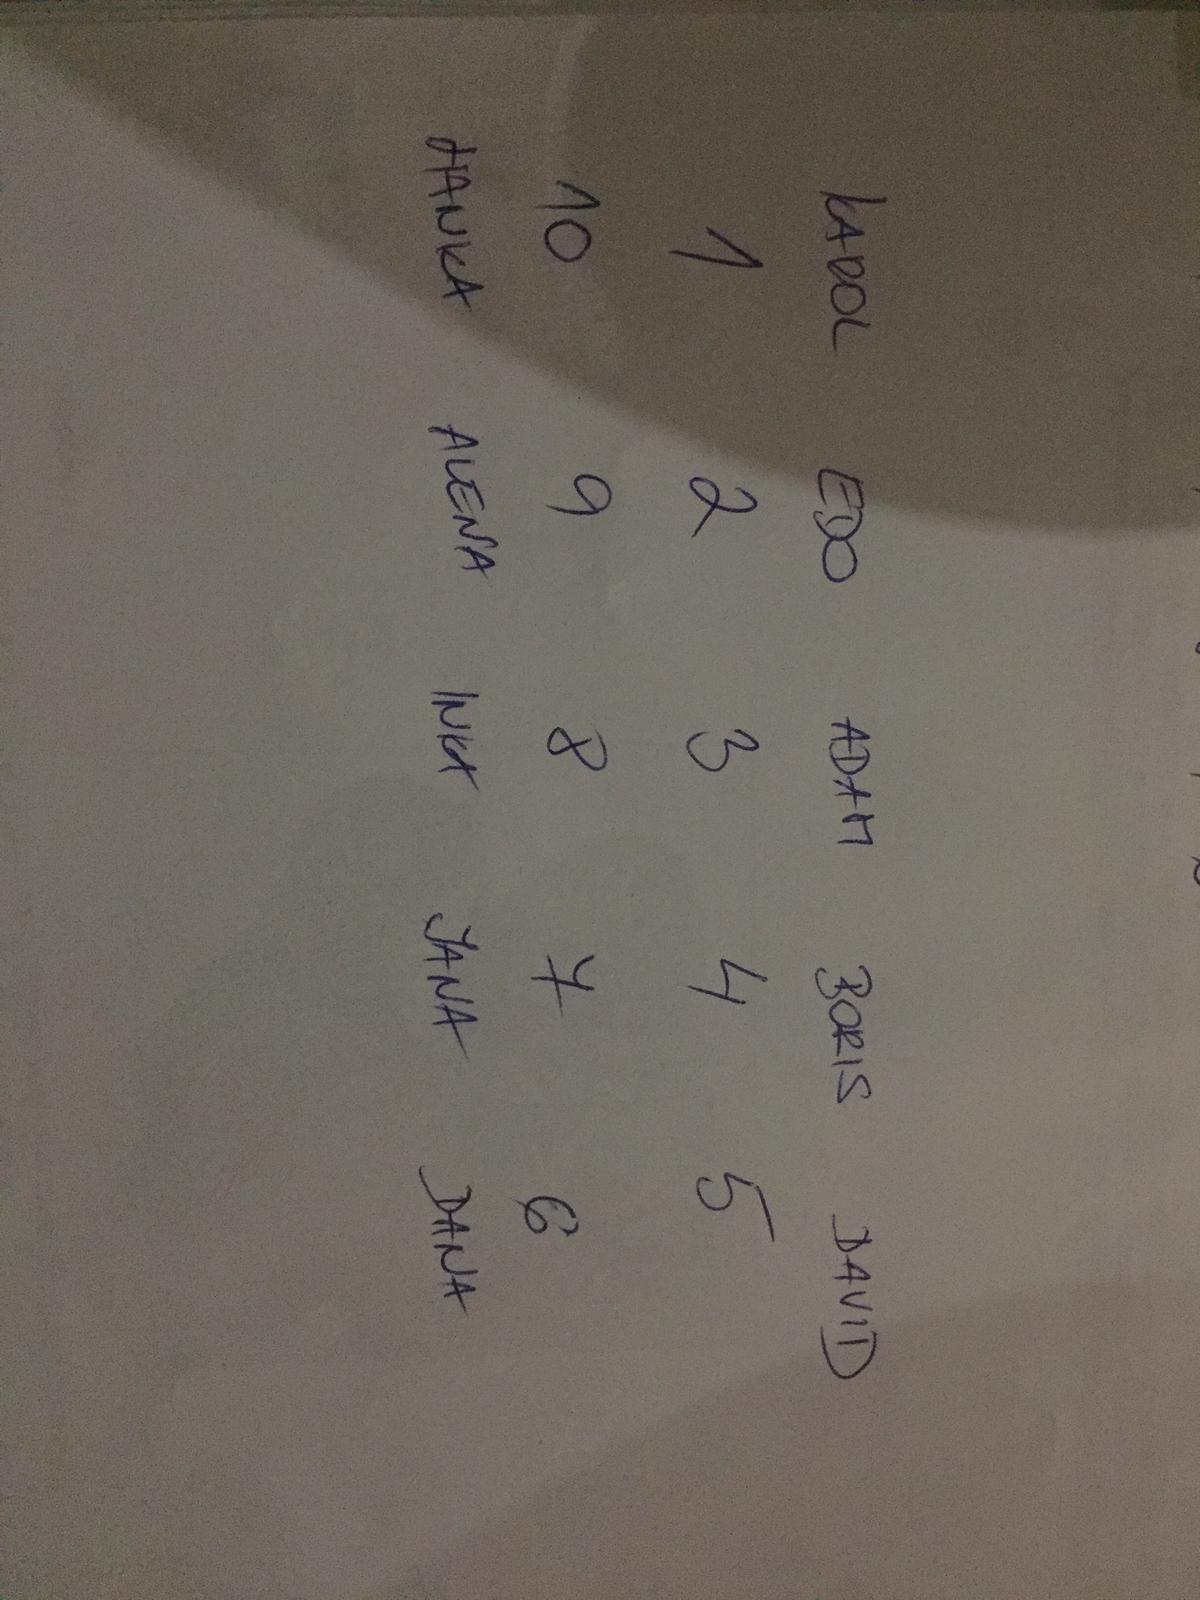 KAROL EDO ADAM BORIS DAVID
1 2 3 4 5
10 9 8 7 6
HANKA ALENA INKA JANA DANA